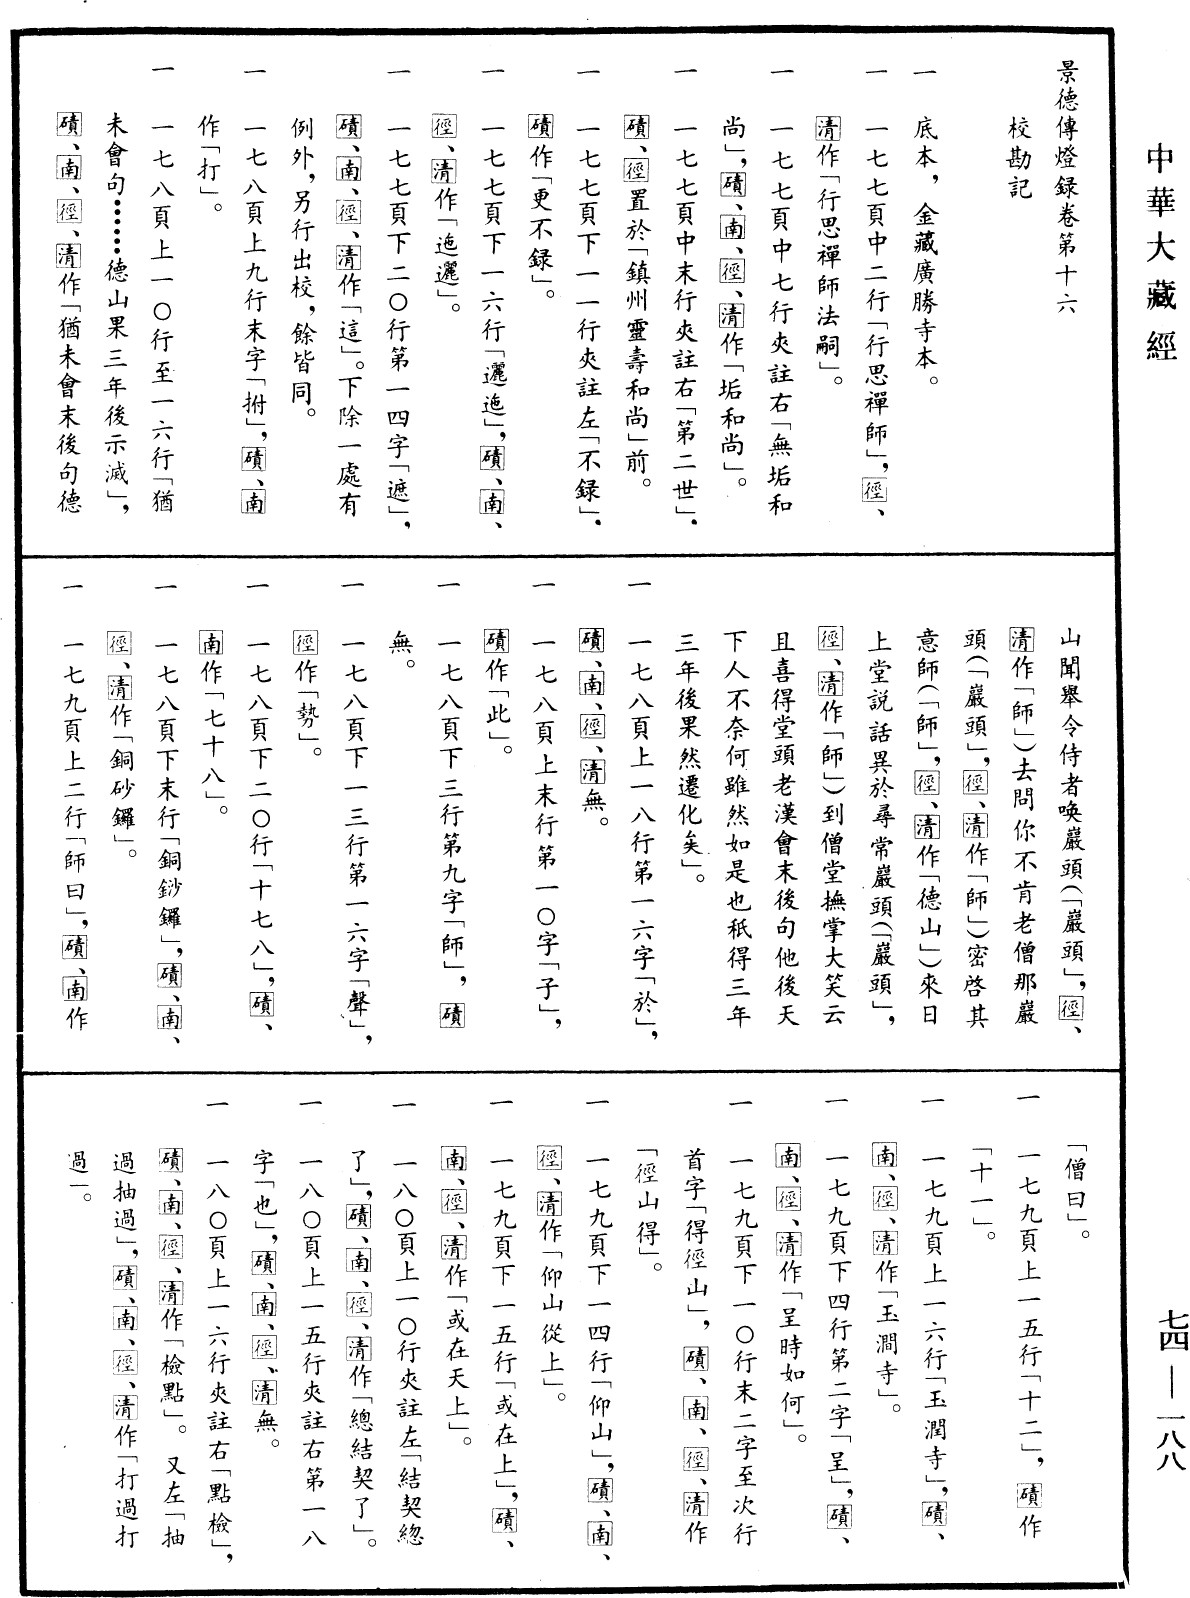 中華大藏經
景德傳燈録卷第十六
校勘記
一　底本，金藏廣勝寺本。
一　一七七頁中二行「行思禪師」，徑、
清作「行思禪師法嗣」。
一　一七七頁中七行夾註右「無垢和
尚」，磧、南、徑、清作「垢和尚」。
一　一七七頁中末行夾註右「第二世」，
磧、徑置於「鎮州靈壽和尚」前。
一　一七七頁下一一行夾註左「不録」，
磧作「更不録」。
一　一七七頁下一六行「邐迤」，磧、南、
徑、清作「迤邐」。
一　一七七頁下二〇行第一四字「遮」，
磧、南、徑、清作「這」。下除一處有
例外，另行出校，餘皆同。
一　一七八頁上九行末字「拊」，磧、南
作「打」。
一　一七八頁上一〇行至一六行「猶
未會句……德山果三年後示滅」，
磧、南、徑、清作「猶未會末後句德
山聞舉令侍者喚巖頭（「巖頭」，徑、
清作「師」）去問你不肯老僧那巖
頭（「巖頭」，徑、清作「師」）密啓其
意師（「師」，徑、清作「德山」）來日
上堂説話異於尋常巖頭（「巖頭」，
徑、清作「師」）到僧堂撫掌大笑云
且喜得堂頭老漢會末後句他後天
下人不奈何雖然如是也秖得三年
三年後果然遷化矣」。
一　一七八頁上一八行第一六字「於」，
磧、南、徑、清無。
一　一七八頁上末行第一〇字「子」，
磧作「此」。
一　一七八頁下三行第九字「師」，磧
無。
一　一七八頁下一三行第一六字「聲」，
徑作「勢」。
一　一七八頁下二〇行「十七八」，磧、
南作「七十八」。
一　一七八頁下末行「銅鈔鑼」，磧、南、
徑、清作「銅砂鑼」。
一　一七九頁上二行「師曰」，磧、南作
「僧曰」。
一　一七九頁上一五行「十二」，磧作
「十一」。
一　一七九頁上一六行「玉潤寺」，磧、
南、徑、清作「玉澗寺」。
一　一七九頁下四行第二字「呈」，磧、
南、徑、清作「呈時如何」。
一　一七九頁下一〇行末二字至次行
首字「得徑山」，磧、南、徑、清作
「徑山得」。
一　一七九頁下一四行「仰山」，磧、南、
徑、清作「仰山從上」。
一　一七九頁下一五行「或在上」，磧、
南、徑、清作「或在天上」。
一　一八〇頁上一〇行夾註左「結契總
了」，磧、南、徑、清作「總結契了」。
一　一八〇頁上一五行夾註右第一八
字「也」，磧、南、徑、清無。
一　一八〇頁上一六行夾註右「點檢」，
磧、南、徑、清作「檢點」。又左「抽
過抽過」，磧、南、徑、清作「打過打
過」。
七四—一八八